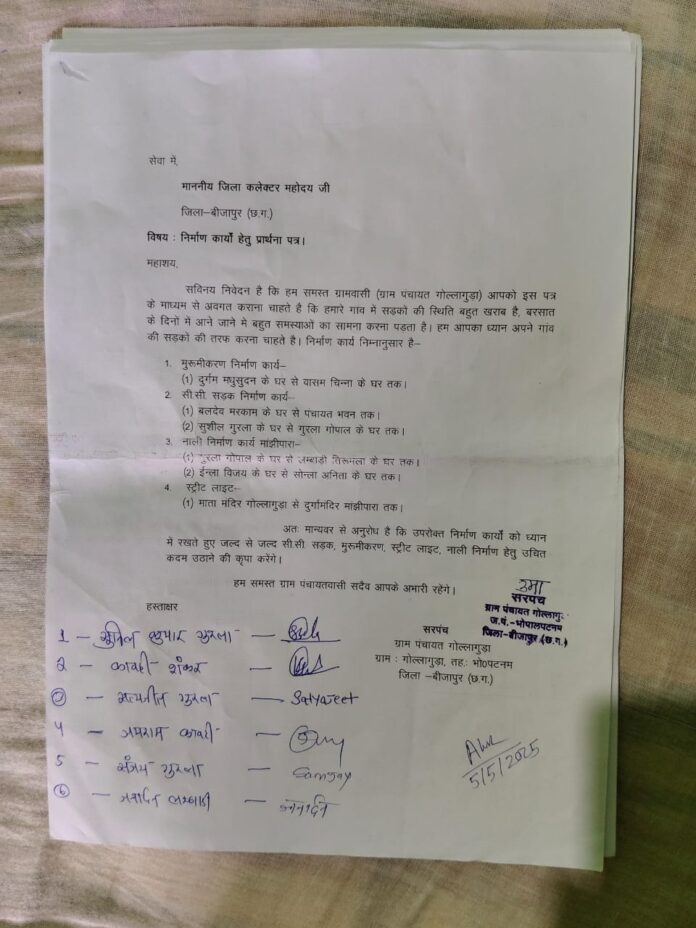 सेवा में,
माननीय जिला कलेक्टर महोदय जी
जिला–बीजापुर (छ.ग.)
विषय : निर्माण कार्यो हेतु प्रार्थना पत्र।
महाशय,
सविनय निवेदन है कि हम समस्त ग्रामवासी (ग्राम पंचायत गोल्लागुड़ा) आपको इस पत्र
के माध्यम से अवगत कराना चाहते है कि हमारे गांव में सड़को की स्थिति बहुत खराब है, बरसात
के दिनों में आने जाने मे बहुत समस्याओ का सामना करना पडता है। हम आपका ध्यान अपने गांव
की सड़कों की तरफ करना चाहते है। निर्माण कार्य निम्नानुसार है–
1. मुरूमीकरण निर्माण कार्य–
(1) दुर्गम मधुसुदन के घर से वासम चिन्ना के घर तक।
2. सी.सी. सडक निर्माण कार्य–
(1) बलदेव मरकाम के घर से पंचायत भवन तक।
(2) सुशील गुरला के घर से गुरला गोपाल के घर तक।
3. नाली निर्माण कार्य मांझीपारा–
(1) गुरला गोपाल के घर से लम्बाडी तिरूमला के घर तक।
(2) ईन्ला विजय के घर से सोन्ला अनिता के घर तक।
4. स्ट्रीट लाइट:–
(1) माता मंदिर गोल्लागुड़ा से दुर्गामंदिर मांझीपारा तक।
अतः मान्यवर से अनुरोध है कि उपरोक्त निर्माण कार्यो को ध्यान
मे रखते हुए जल्द से जल्द सी.सी. सड़क, मुरूमीकरण, स्ट्रीट लाइट, नाली निर्माण हेतु उचित
कदम उठाने की कृपा करेंगे।
हम समस्त ग्राम पंचायतवासी सदैव आपके अभारी रहेगें।
हस्ताक्षर
उमा
सरपंच
ग्राम पंचायत गोल्लागु
ज.पं.-भोपालपटनम
जिला-बीजापुर (छ.ग.)
सरपंच
ग्राम पंचायत गोल्लागुड़ा
ग्राम : गोल्लागुड़ा, तह: भो0पटनम
जिला –बीजापुर (छ.ग.)
1 – सुनिल कुमार गुरला –
2 – कावरी शंकर –
3 – सत्यजीत गुरला – Satyajeet
4 – जयराम कावरी –
5 – संजय गुरला – Sanjay
6 – जनार्दन लम्बाडी – जनार्दन
5/5/2025